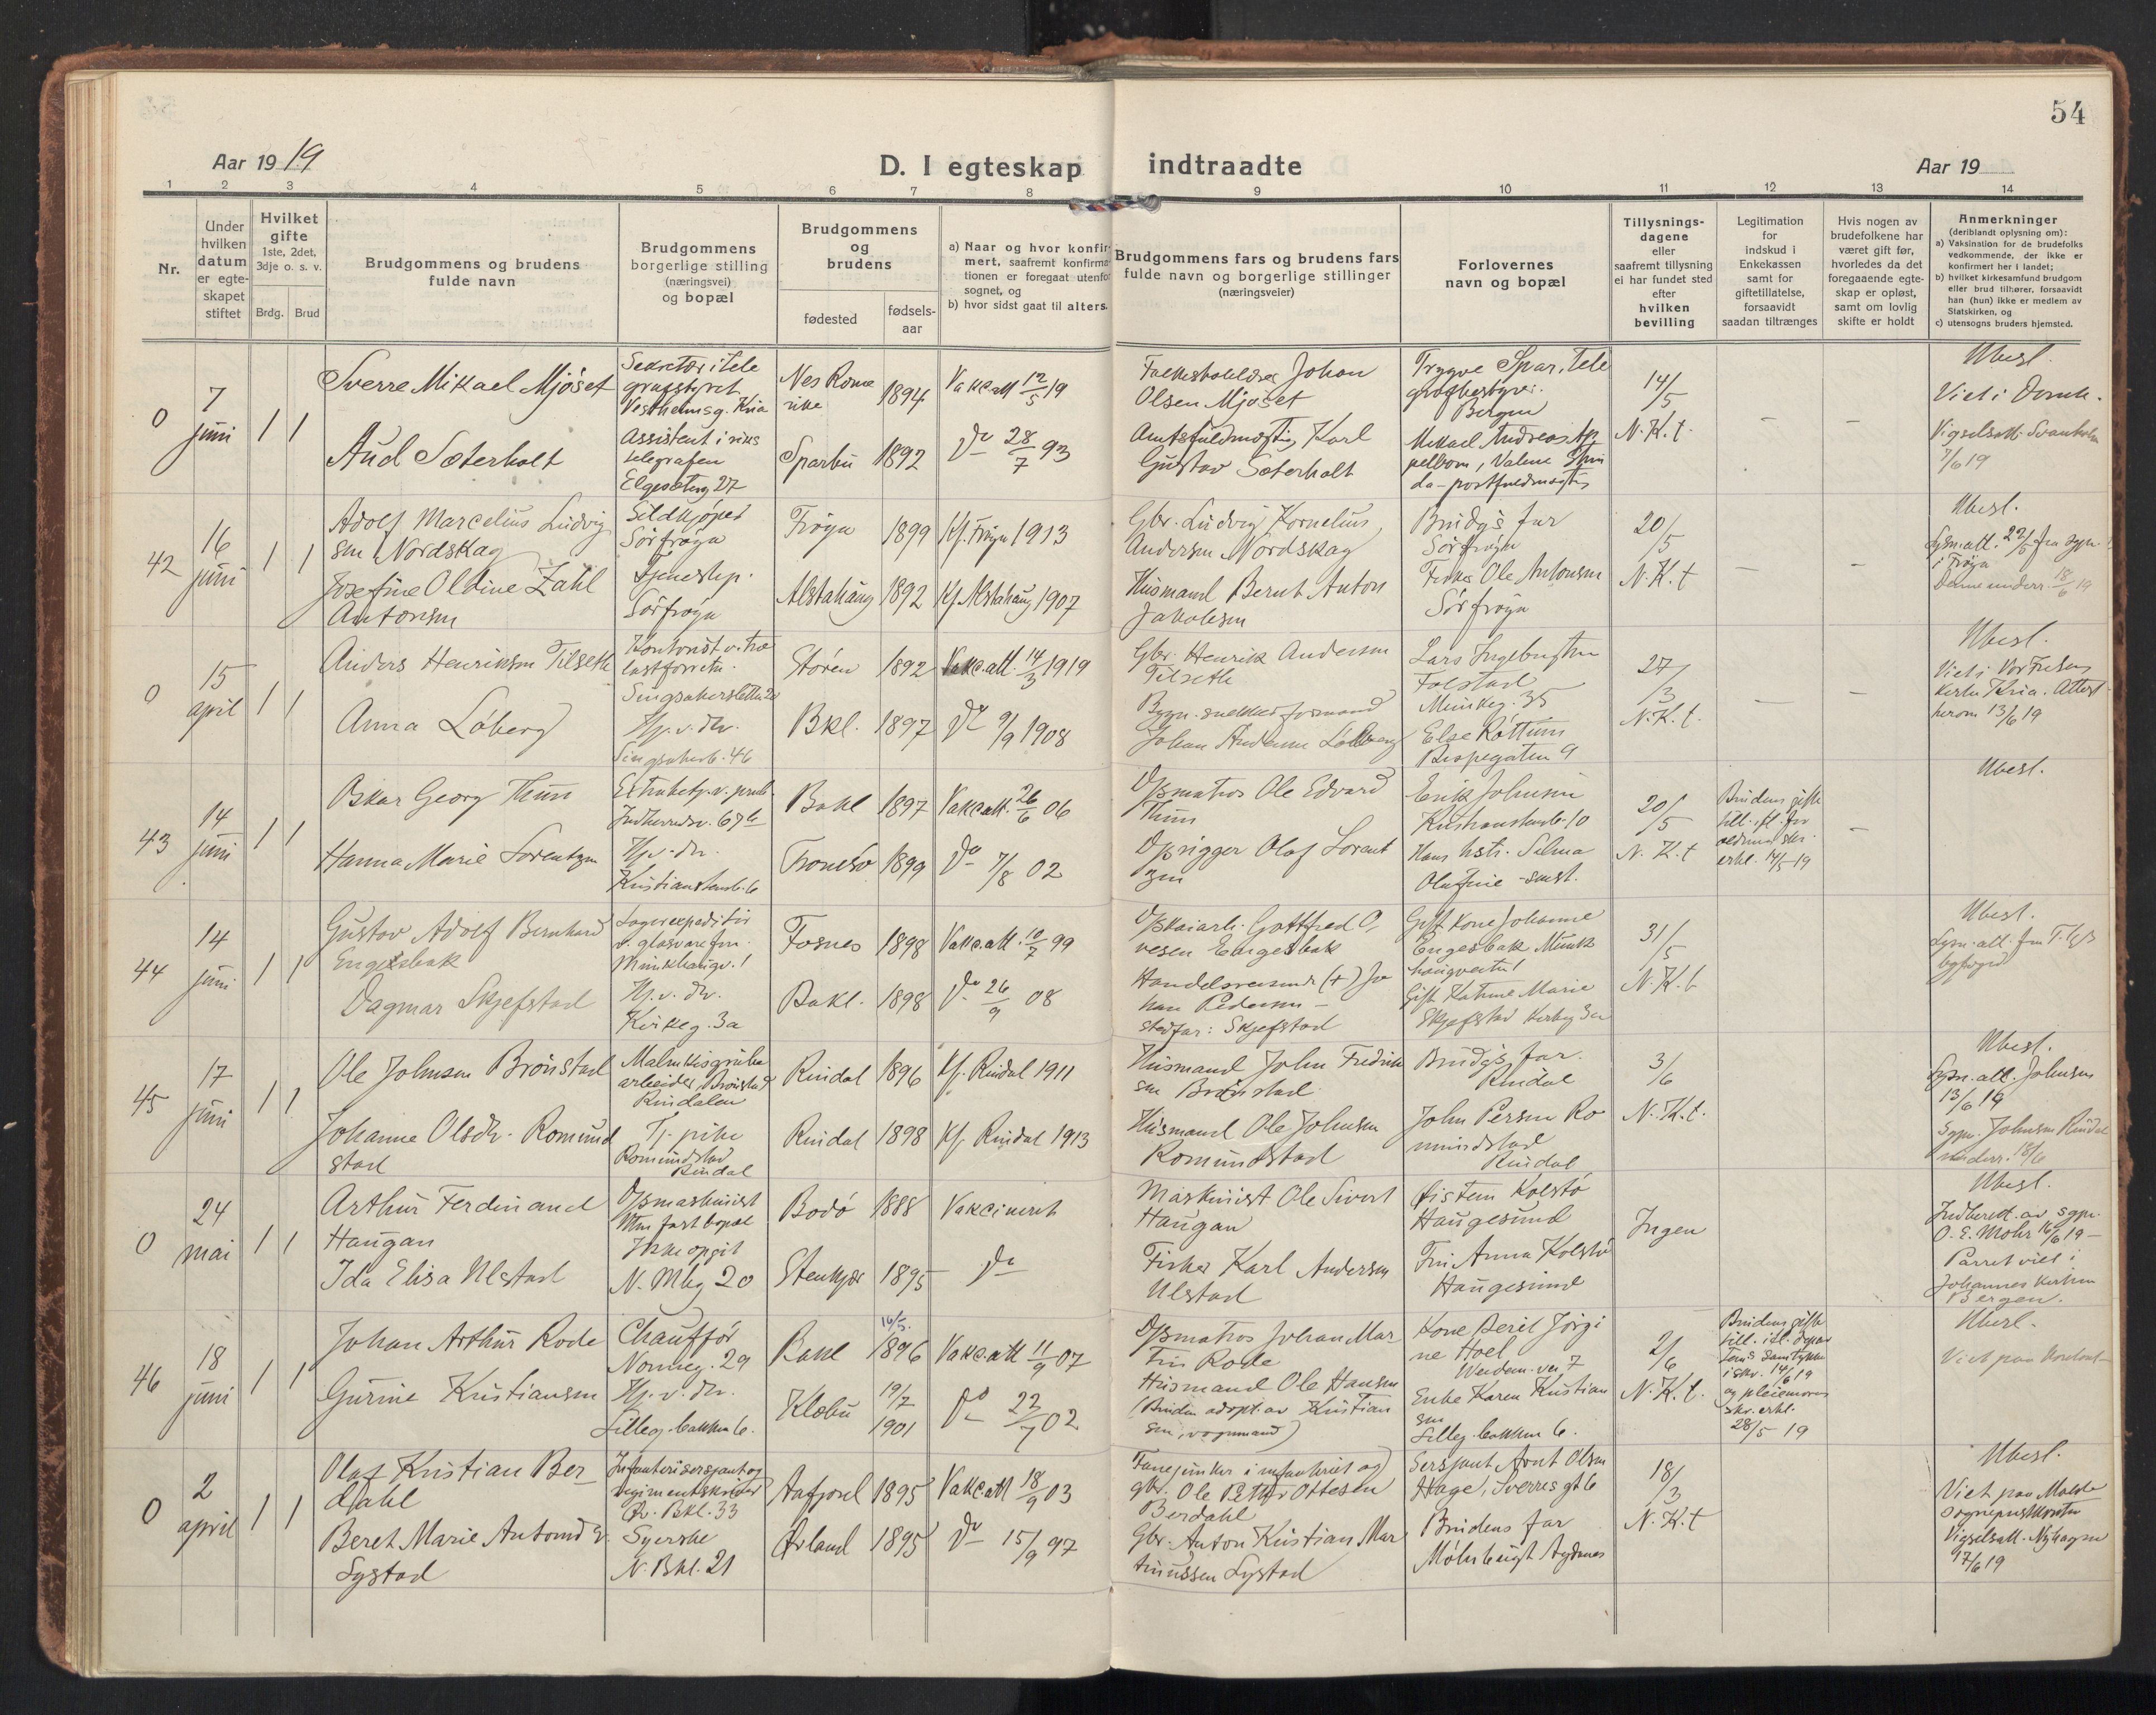 54
Aar 1919
D. I egteskap indtraadte
Aar 19
1 2 3 4 5 6 7 8 9 10 11 12 13 14
Nr.
Under hvilken datum er egte-skapet stiftet
Hvilket gifte
1ste, 2det, 3dje o. s. v.
Brdg. Brud
Brudgommens og brudens fulde navn
Brudgommens borgerlige stilling (næringsvei) og bopæl
Brudgommens og brudens
fødested
fødsels-aar
a) Naar og hvor konfir-
mert, saafremt konfirma-
tionen er foregaat utenfor
sognet, og
b) hvor sidst gaat til alters.
Brudgommens fars og brudens fars
fulde navn og borgerlige stillinger
(næringsveier)
Forlovernes
navn og bopæl
Tillysnings-
dagene
eller
saafremt tillysning
ei har fundet sted
efter
hvilken
bevilling
Legitimation
for
indskud i
Enkekassen
samt for
giftetillatelse,
forsaavidt
saadan tiltrænges
Hvis nogen av
brudefolkene har
været gift før,
hvorledes da det
foregaaende egte-
skap er opløst,
samt om lovlig
skifte er holdt
Anmerkninger
(deriblandt oplysning om):
a) Vaksination for de brudefolks
vedkommende, der ikke er
konfirmert her i landet;
b) hvilket kirkesamfund brudgom
eller brud tilhører, forsaavidt
han (hun) ikke er medlem av
Statskirken, og
c) utensogns bruders hjemsted.
0
7 juni
1 1
Sverre Mikael Mjöset
Sekretær i tele
grafstyret
Vestheimsg. Kria
Nes Rome
rike
1894
Vakc.att 12/5 19
Johan
Olsen Mjöset
Trygve Spar, tele
grafbestyrer
Bergen
14/5
N.K.t.
Ubesl.
Viet i Domk.
Vigselsatt. Svanholm
7/6 19
Aud Sæterholt
Assistent i riks
telegrafen
Elgesæterg 27
Sparbu
1892
Do 28/7 93
Amtsfuldmægtig Karl
Gustav Sæterholt
Mikael Andreas Ap
pelbom, Valene Strin
da - postfuldmægtig
42
16 juni
1 1
Adolf Marcelius Ludvig
sen Nordskag
Sildkjøper
Sörfröya
Fröya
1899
Kf. Fröya 1913
Gbr. Ludvig Kornelius
Andersen Nordskag
Brudg's far
Sörfröya
20/5
N.K.t
Ubesl.
Lysn.att. 22/5 fra sgpr.
i Fröya
Denne underr. 18/6 19
Josefine Oldine Zahl
Antonsen
Tjenestep.
Sörfröya
Alstahaug
1892
Kf. Alstahaug 1907
Husmand Bernt Anton
Jakobsen
Fisker Ole Antonsen
Sörfröya
0
15 april
1 1
Anders Henriksen Tilseth
Kontorist v. træ
lastforretn.
Singsakersletta 2a
Stören
1892
Vakc.att. 14/3 1919
Gbr. Henrik Andersen
Tilseth
Lars Ingebrigtsen
Folstad
Munkeg. 35
27/3
N.K.t.
Ubesl.
Viet i Vor Frelsers
kirke Kria. Attest
herom 13/6 19
Anna Löberg
Hj. v. dr.
Singsakerb. 46
Bkl.
1897
Do 9/9 1908
Bygn. snekkerformand
Johan Andersen Löberg
Else Röttum
Bispegaten 9
43
14 juni
1 1
Oskar Georg Thun
Indherredsv. 67b
Bakl
1897
Vakc.att. 26/6 06
Dpsmatros Ole Edvard
Thun
Erik Johnsen
Kristianstensb. 10
20/5
N.K.t
Brudens gifte
till. ifl. for
ældrenes skr.
erkl. 14/5 19
Ubesl.
Hanna Marie Lorentzen
Hj. v. dr.
Kristianstensb. 6
Tromsö
1899
Do 7/8 02
Dprigger Olaf Lorent
zen
Hans hstr. Selma
Olufine - smst.
44
14 juni
1 1
Gustav Adolf Bernhard
Engesbak
Lagerexpeditör
v. glasvareforr.
Munkhaugv. 1
Fosnes
1898
Vakc.att. 10/7 99
Dpskaiarb. Gottfred O
vesen Engesbak
Gift kone Johanne
Engesbak Munk
haugveita 1
31/5
N.K.t
Ubesl.
Lysn. att. fra T.hjs
byfogd
Dagmar Skjefstad
Hj. v. dr.
Kirkeg. 3a
Bakl.
1898
Do 26/9 08
Handelsreisende (+) Jo
han Pedersen -
stedfar: Skjefstad
Gift Katrine Marie
Skjefstad Kirkeg 3a
45
17 juni
1 1
Ole Johnsen Brönstad
Malmkisgrube
arbeider, Brönstad
Rindalen
Rindal
1896
Kf. Rindal 1911
Husmand John Fredrik
sen Brönstad
Brudg's far.
Rindal
3/6
N.K.t.
Ubesl.
Lysn. att. Johnsen
13/6 19
Sgpr. Johnsen Rindal
underr. 18/6
Johanne Olsdr. Romund
stad
Tj. pike
Romundstad
Rindal
Rindal
1898
Kf. Rindal 1913
Husmand Ole Johnsen
Romundstad
John Persen Ro
mundstad
Rindal
0
24 mai
1 1
Arthur Ferdinand
Haugan
Dpsmaskinist
Uten fast bopæl
Ikke opgit
Bodö
1888
Vakcinert
Maskinist Ole Sivert
Haugan
Öistein Kolstö
Haugesund
Ingen
Ubesl.
Indberett. av sgpr.
O.E. Mohr 16/6 19 -
Parret viet i
Johannes kirken
Bergen.
Ida Elisa Ulstad
N. Mbg 20
Stenkjær
1895
Do
Fisker Karl Andersen
Ulstad
Fru Anna Kolstö
Haugesund
46
18 juni
1 1
Johan Arthur Rode
Chauffør
Nonneg. 29
Bakl
16/5 1896
Vakc.att 11/9 07
Dpsmatros Johan Mar-
tin Rode
Kone Berit Jörgi
ne Hoel
Weidem. vei 7
2/6
N.K.t.
Brudens gifte
till. ifl. depar
tems samtykke
i skr. 14/6 19
og pleiemors
skr. erkl.
28/5 19
Ubesl.
Viet paa kontoret
Gurine Kristiansen
Hj. v. dr.
Lilleg. bakken 6.
Klæbu
19/7 1901
Do 22/7 02
Husmand Ole Hansen
(Bruden adopt. av Kristian
sen, vognmand)
Enke Karen Kristian
sen
Lilleg. bakken 6.
0
2 april
1 1
Olaf Kristian Ber
dahl
Infanterisersjant og
regimentskriver
Ö. Bkl. 33
Aafjord
1895
Vakc.att 18/9 03
Fanejunker i infanteriet og
gbr. Ole Petter Ottesen
Berdahl
Sersjant Arnt Olsen
Hage, Sverresgt 6
18/3
N.K.t
Ubesl.
Viet paa Molde
sogneprestkontor
Vigselsatt. Nyhagen
17/6 19
Beret Marie Antonsdr.
Lystad
Syerske
N. Bkl. 21
Ørland
1895
Do 15/9 97
Gbr. Anton Kristian Mar
tinussen Lystad
Brudens far